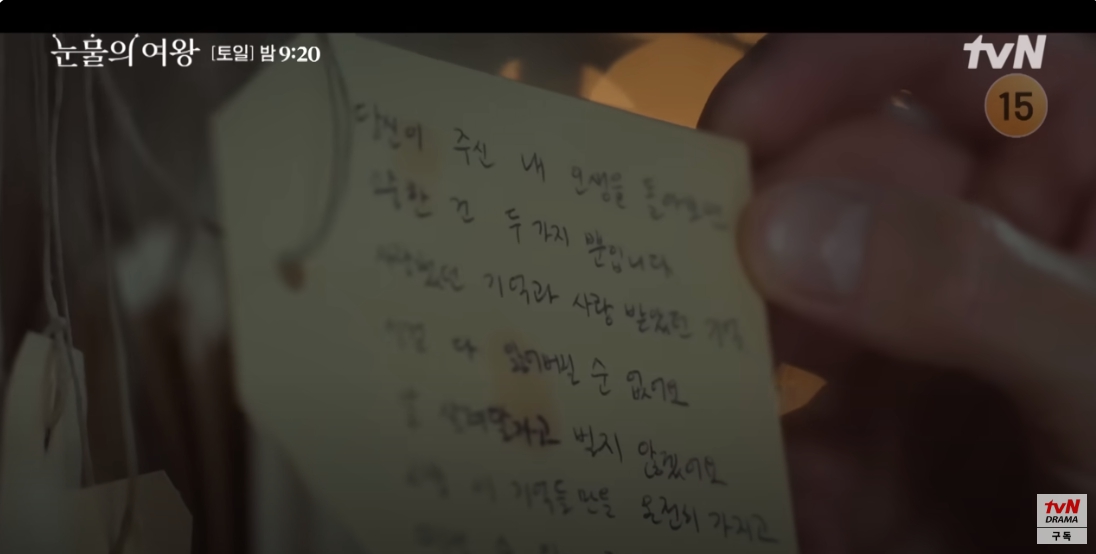 눈물의 여왕 [토일] 밤 9:20
tvN
15
당신이 주신 내 모생을 돌아보면
소중한 건 두 가지 뿐입니다
사랑했던 기억과 사랑 받았던 기억
다 잃어버릴 순 없어요
살려달라고 빌지 않겠어요
이 기억들만을 온전히 가지고
tvN
DRAMA
구독